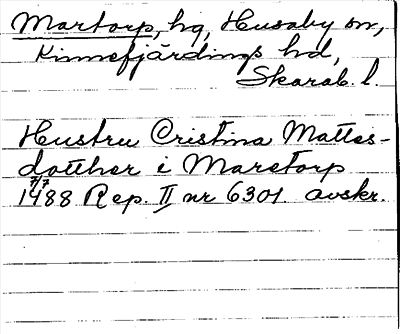 Martorp, hg, Husaby sn,
Kinnefjärdings hd,
Skarab. l.
Hustru Cristina Mattes-
dotther i Maretorp
7/7
1488 Rep. II nr 6301. avskr.